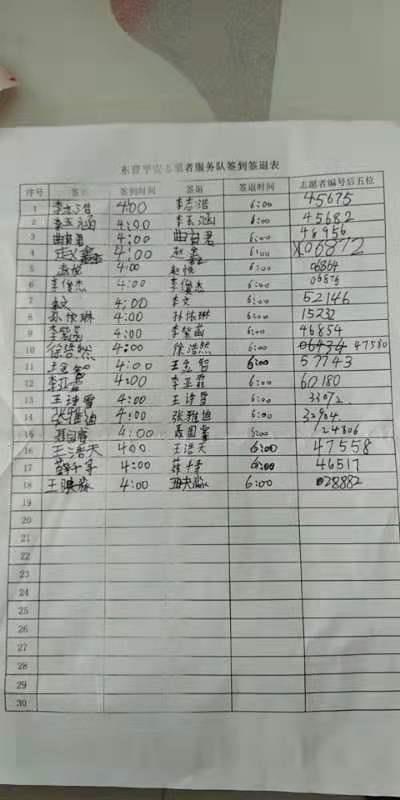 东营平安志愿者服务队签到签退表
序号 签到 签到时间 签退 签退时间 志愿者编号后五位
1 李志浩 4:00 李志浩 6:00 45675
2 李玉涵 4:00 李玉涵 6:00 45682
3 4:00 6:00 48956
4 4:00 6:00 06872
5 4:00 6:00 06864
6 李俊杰 4:00 李俊杰 6:00
7 李文 4:00 李文 6:00 52146
8 孙依琳 4:00 孙依琳 6:00 15232
9 4:00 6:00 46854
10 徐浩然 4:00 徐浩然 6:00 47580
11 王金智 4:00 王金智 6:00 57743
12 4:00 6:00 60180
13 王诗雪 4:00 王诗雪 6:00
14 张雅迪 4:00 张雅迪 6:00
15 4:00 6:00 24806
16 王浩天 4:00 王浩天 6:00 47558
17 薛千寻 4:00 薛千寻 6:00 46517
18 4:00 6:00 028882
19
20
21
22
23
24
25
26
27
28
29
30